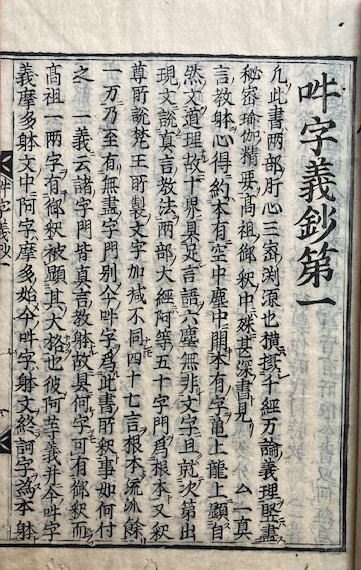 吽字義鈔第一
凡此書両部肝心三密渕源也横擬千経万論義理竪盡
秘密瑜伽精要高祖御釈中殊甚深書見 ム一真
言教躰心得約本有空中塵中開本有字亀上龍上顕自
然文道理故十界具足言語六塵無非文字且就次第出
現文説真言教法両部大経阿等五十字門為根本又釈
尊所説梵王所製文字加减不同四十七言根本流派餘
一万乃至有無盡字門别今吽字為此書所釈事如何付
之 一義云諸字門皆真言教躰故具何字可有御釈而
高祖一両字有御釈被顕其大格也彼阿等義并今吽字
義摩多躰文中阿字摩多始今吽字躰文終訶字為本躰
吽字義鈔一